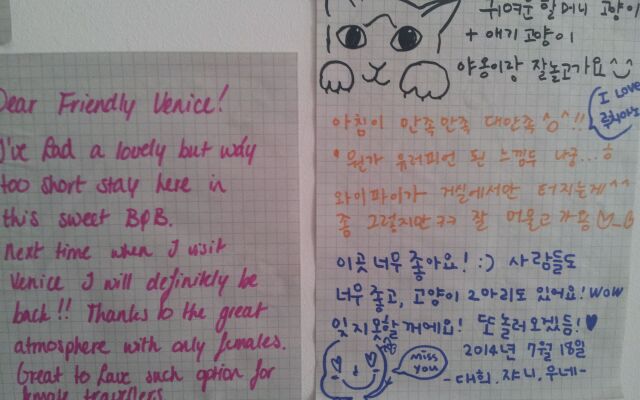 Dear Friendly Venice!
I've had a lovely but way
too short stay here in
this sweet B&B.
Next time when I visit
Venice I will definitely be
back!! Thanks to the great
atmosphere with only females.
Great to have such option for
female travellers
귀여운 할머니 고양이
+ 애기 고양이
야옹이랑 잘놀고가요^◡^
I LOVE
아침이 만족만족 대만족^o^!!
*뭔가 유러피언 된 느낌두 나궁...ㅎ
와이파이가 거실에서만 터지는게^^
좀 그렇지만ㅋㅋ 잘 머물고가용
이곳 너무 좋아요! :) 사람들도
너무 좋고, 고양이 2마리도 있어요! WOW
잊지못할꺼에요! 또놀러오겠듬!♥
miss
you
2014년 7월 18일
-대희.쟈니.우네-